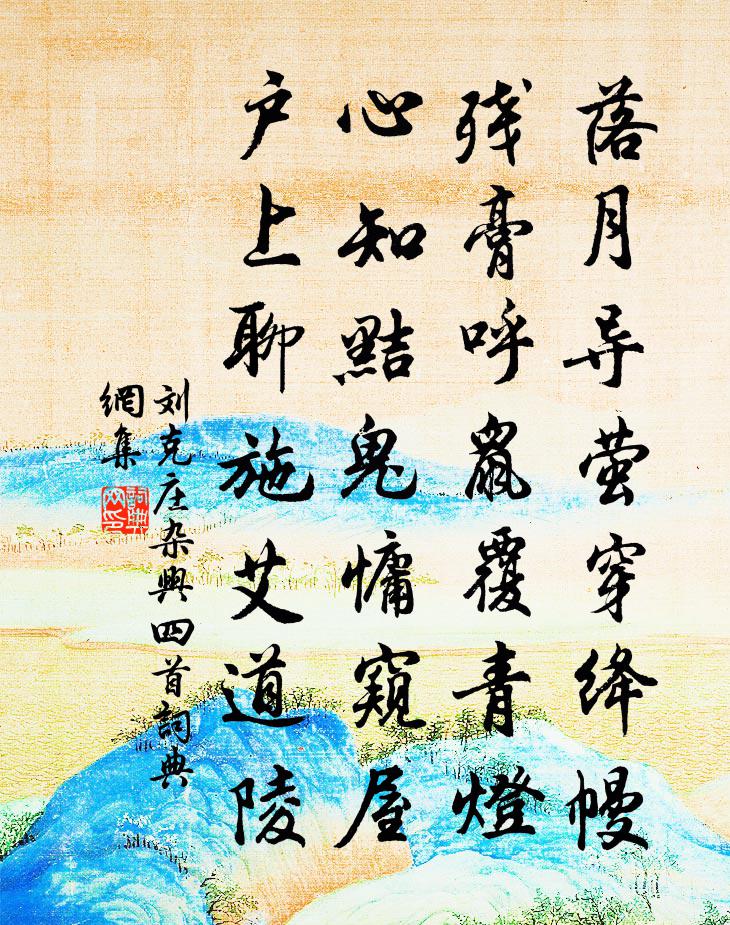 落月导萤穿绛幔
残膏呼鼠覆青燈
心知黠鬼慵窺屋
户上聊施艾道陵
刘克庄杂興四首詞典
網集